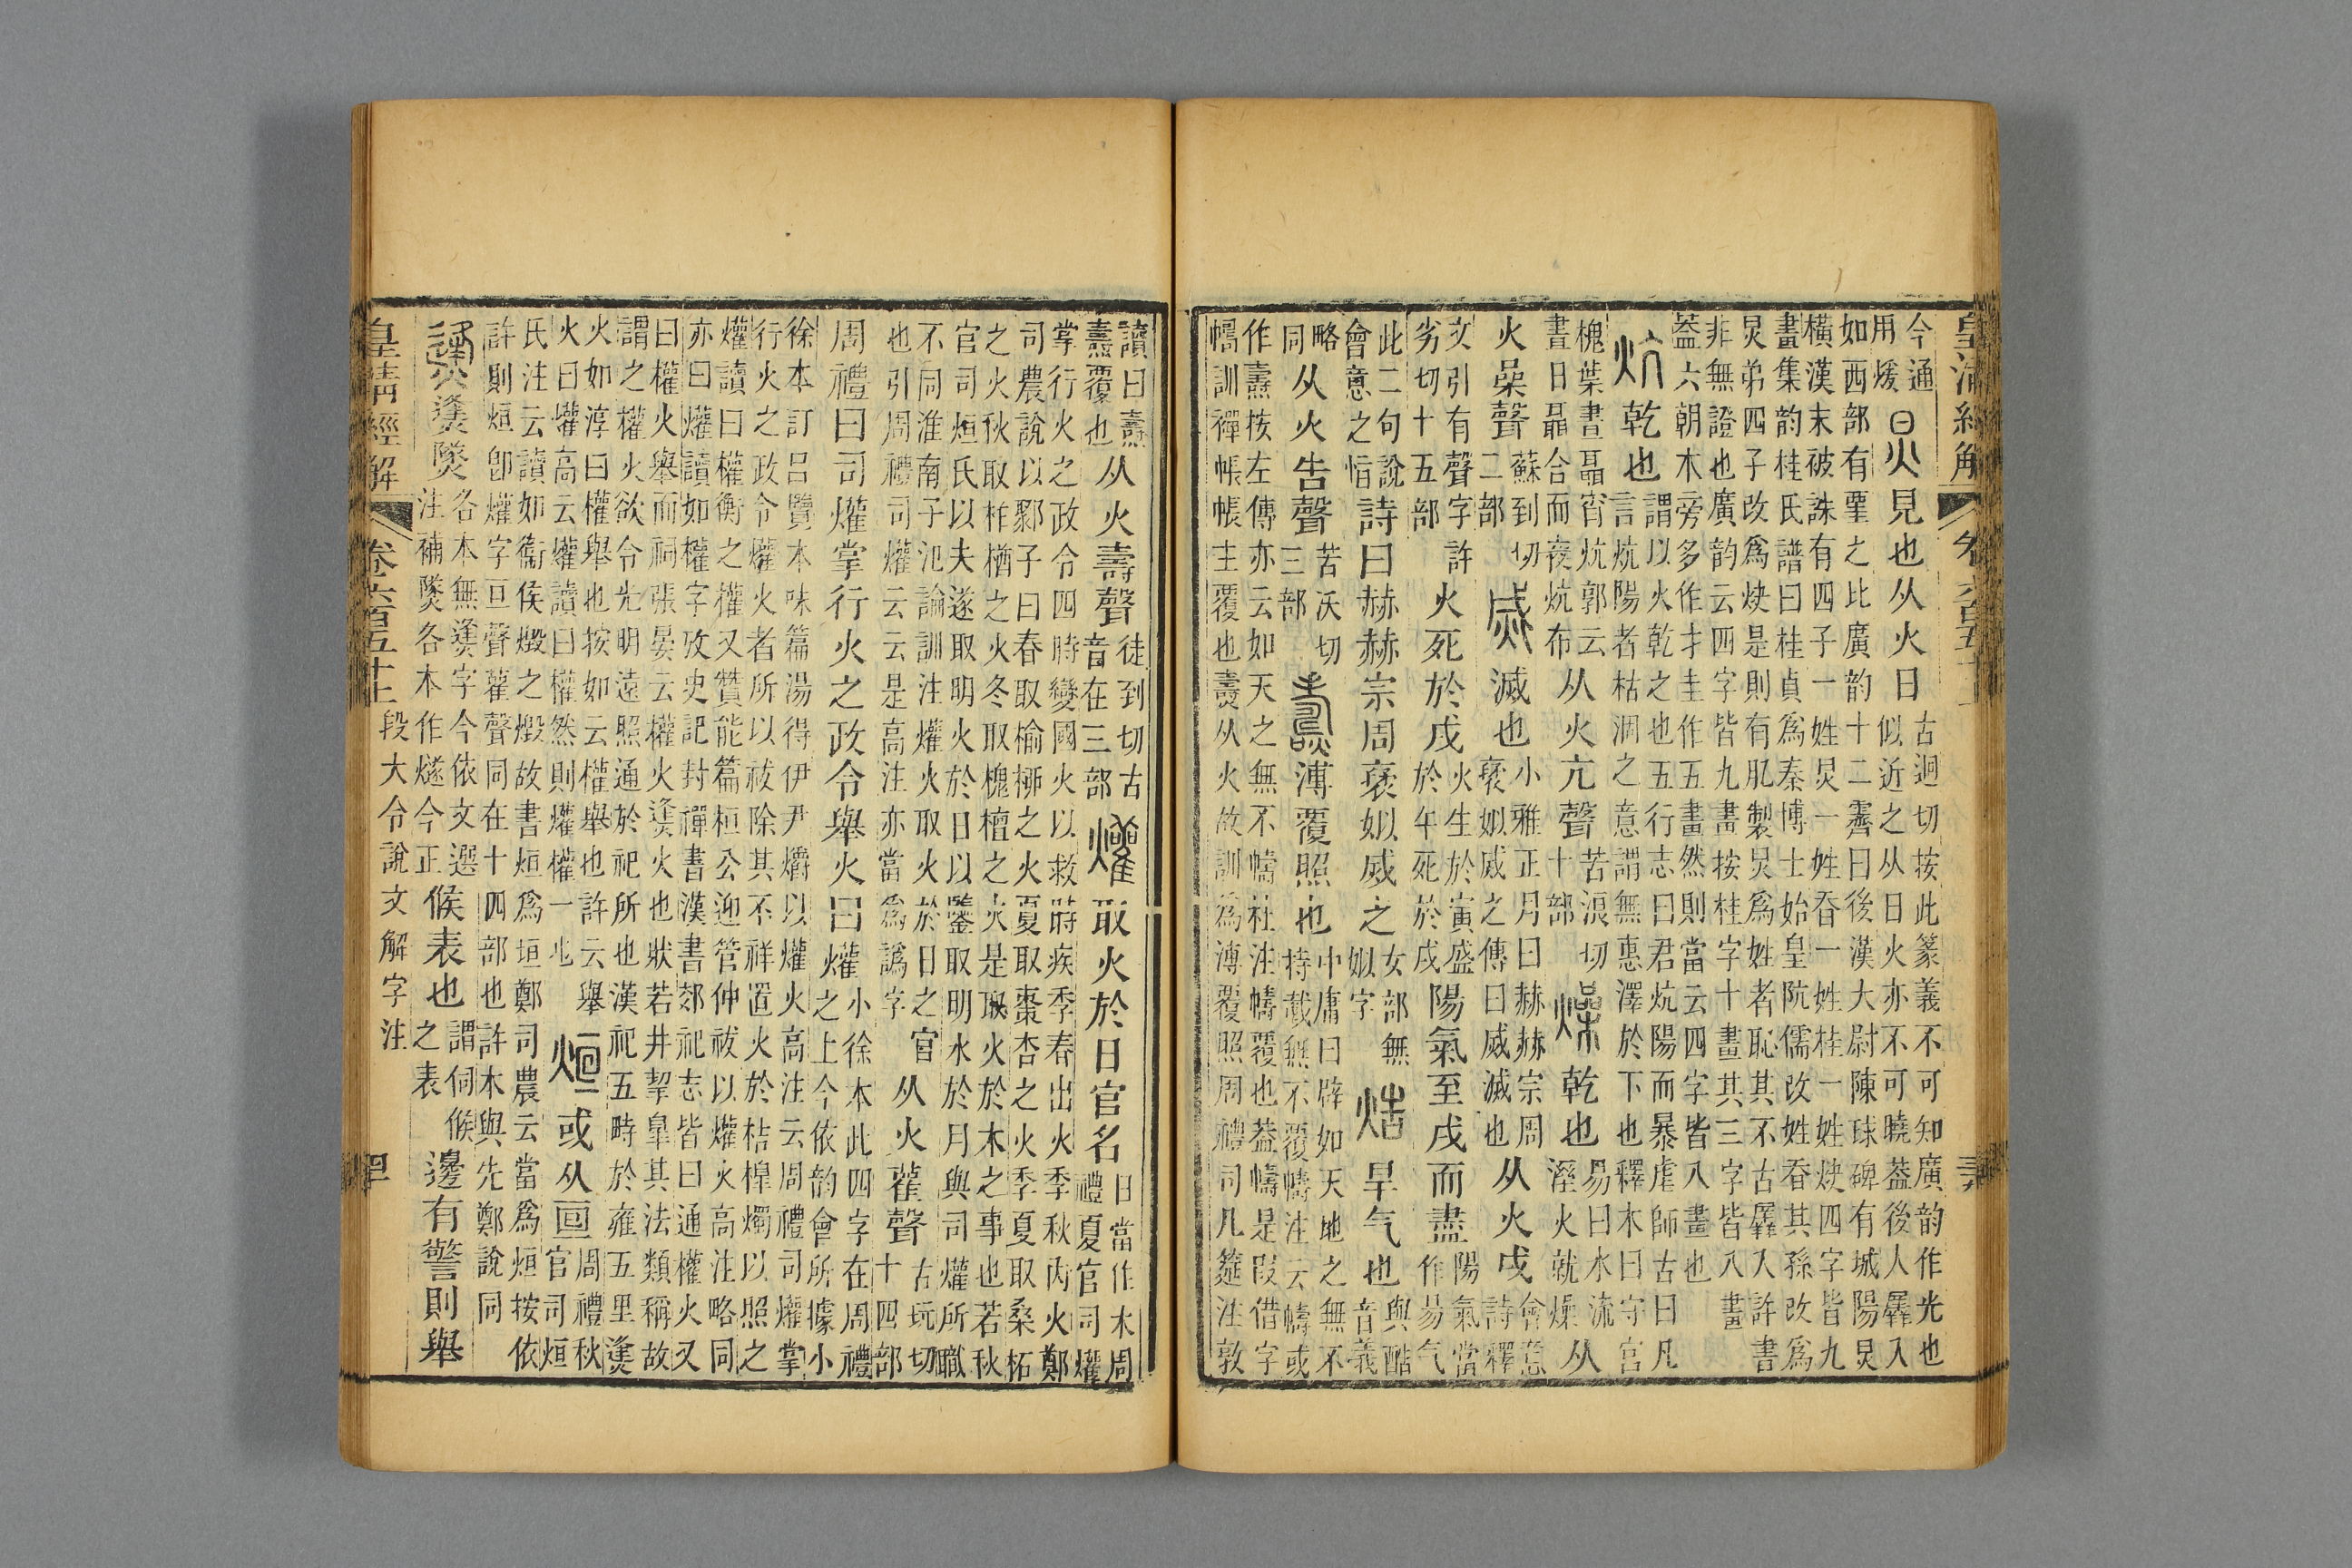 皇清經解 卷六百五十上
今通
用煖
炅見也从火日
古迥切按此篆義不可知廣韵作光也
似近之从日火亦不可曉葢後人羼入
如西部有㽸之比廣韵十二霽曰後漢大尉陳球碑有城陽炅
橫漢末被誅有四子一姓炅一姓昋一姓桂一姓炔四字皆九
畫集韵桂氏譜曰桂貞爲秦博士始皇阬儒改姓昋其孫改爲
炅弟四子改爲炔是則有肊製炅爲姓者恥其不古羼入許書
非無證也廣韵云四字皆九畫按桂字十畫其三字皆八畫
葢六朝木旁多作才圭作五畫然則當云四字皆八畫也
炕乾也
謂以火乾之也五行志曰君炕陽而暴虐師古曰凡
言炕陽者枯涸之意謂無惠澤於下也釋木曰守宮
槐葉晝聶宵炕郭云
晝日聶合而夜炕布
从火亢聲
苦浪切
十部
燥乾也
易曰水流
溼火就燥
从
火喿聲
蘇到切
二部
烕滅也
小雅正月曰赫赫宗周
褒姒烕之傳曰烕滅也
从火戌
會意
詩釋
文引有聲字許
劣切十五部
火死於戌
火生於寅盛
於午死於戌
陽氣至戌而盡
陽氣當
作昜气
此二句說
會意之恉
詩曰赫赫宗周褒姒烕之
女部無
姒字
焅旱气也
與酷
音義
略
同
从火告聲
苦沃切
三部
燾溥覆照也
中庸曰辟如天地之無不
持載無不覆幬注云幬或
作燾按左傳亦云如天之無不幬杜注幬覆也葢幬是叚借字
幬訓襌帳帳主覆也燾从火故訓爲溥覆照周禮司几筵注敦
讀曰燾
燾覆也
从火壽聲
徒到切古
音在三部
爟取火於日官名
日當作木周
禮夏官司爟
掌行火之政令四時變國火以救時疾季春出火季秋內火鄭
司農說以鄹子曰春取榆柳之火夏取棗杏之火季夏取桑柘
之火秋取柞楢之火冬取槐檀之火是取火於木之事也若秋
官司烜氏以夫遂取明火於日以鑒取明水於月與司爟所職
不同淮南子氾論訓注爟火取火於日之官
也引周禮司爟云云是高注亦當爲譌字
从火雚聲
古玩切
十四部
周禮曰司爟掌行火之政令舉火曰爟
小徐本此四字在周禮
之上今依韵會所據小
徐本訂呂覽本味篇湯得伊尹爝以爟火高注云周禮司爟掌
行火之政令爟火者所以祓除其不祥置火於桔橰燭以照之
爟讀曰權衡之權又贊能篇桓公迎管仲祓以爟火高注略同
亦曰爟讀如權字攷史記封禪書漢書郊祀志皆曰通權火又
曰權火舉而祠張晏云權火㷭火也狀若井挈臯其法類稱故
謂之權火欲令光明遠照通於祀所也漢祀五畤於雍五里㷭
火如淳曰權舉也按如云權舉也許云舉
火曰爟高云爟讀曰權然則爟權一也
烜或从亘
周禮秋
官司烜
氏注云讀如衞侯燬之燬故書烜爲垣鄭司農云當爲烜按依
許則烜卽爟字亘聲雚聲同在十四部也許木與先鄭說同
㷭㷭㸂
各本無㷭字今依文選
注補㸂各本作燧今正
候表也
謂伺候
之表
邊有警則舉
皇清經解 卷六百五十上 段大令說文解字注